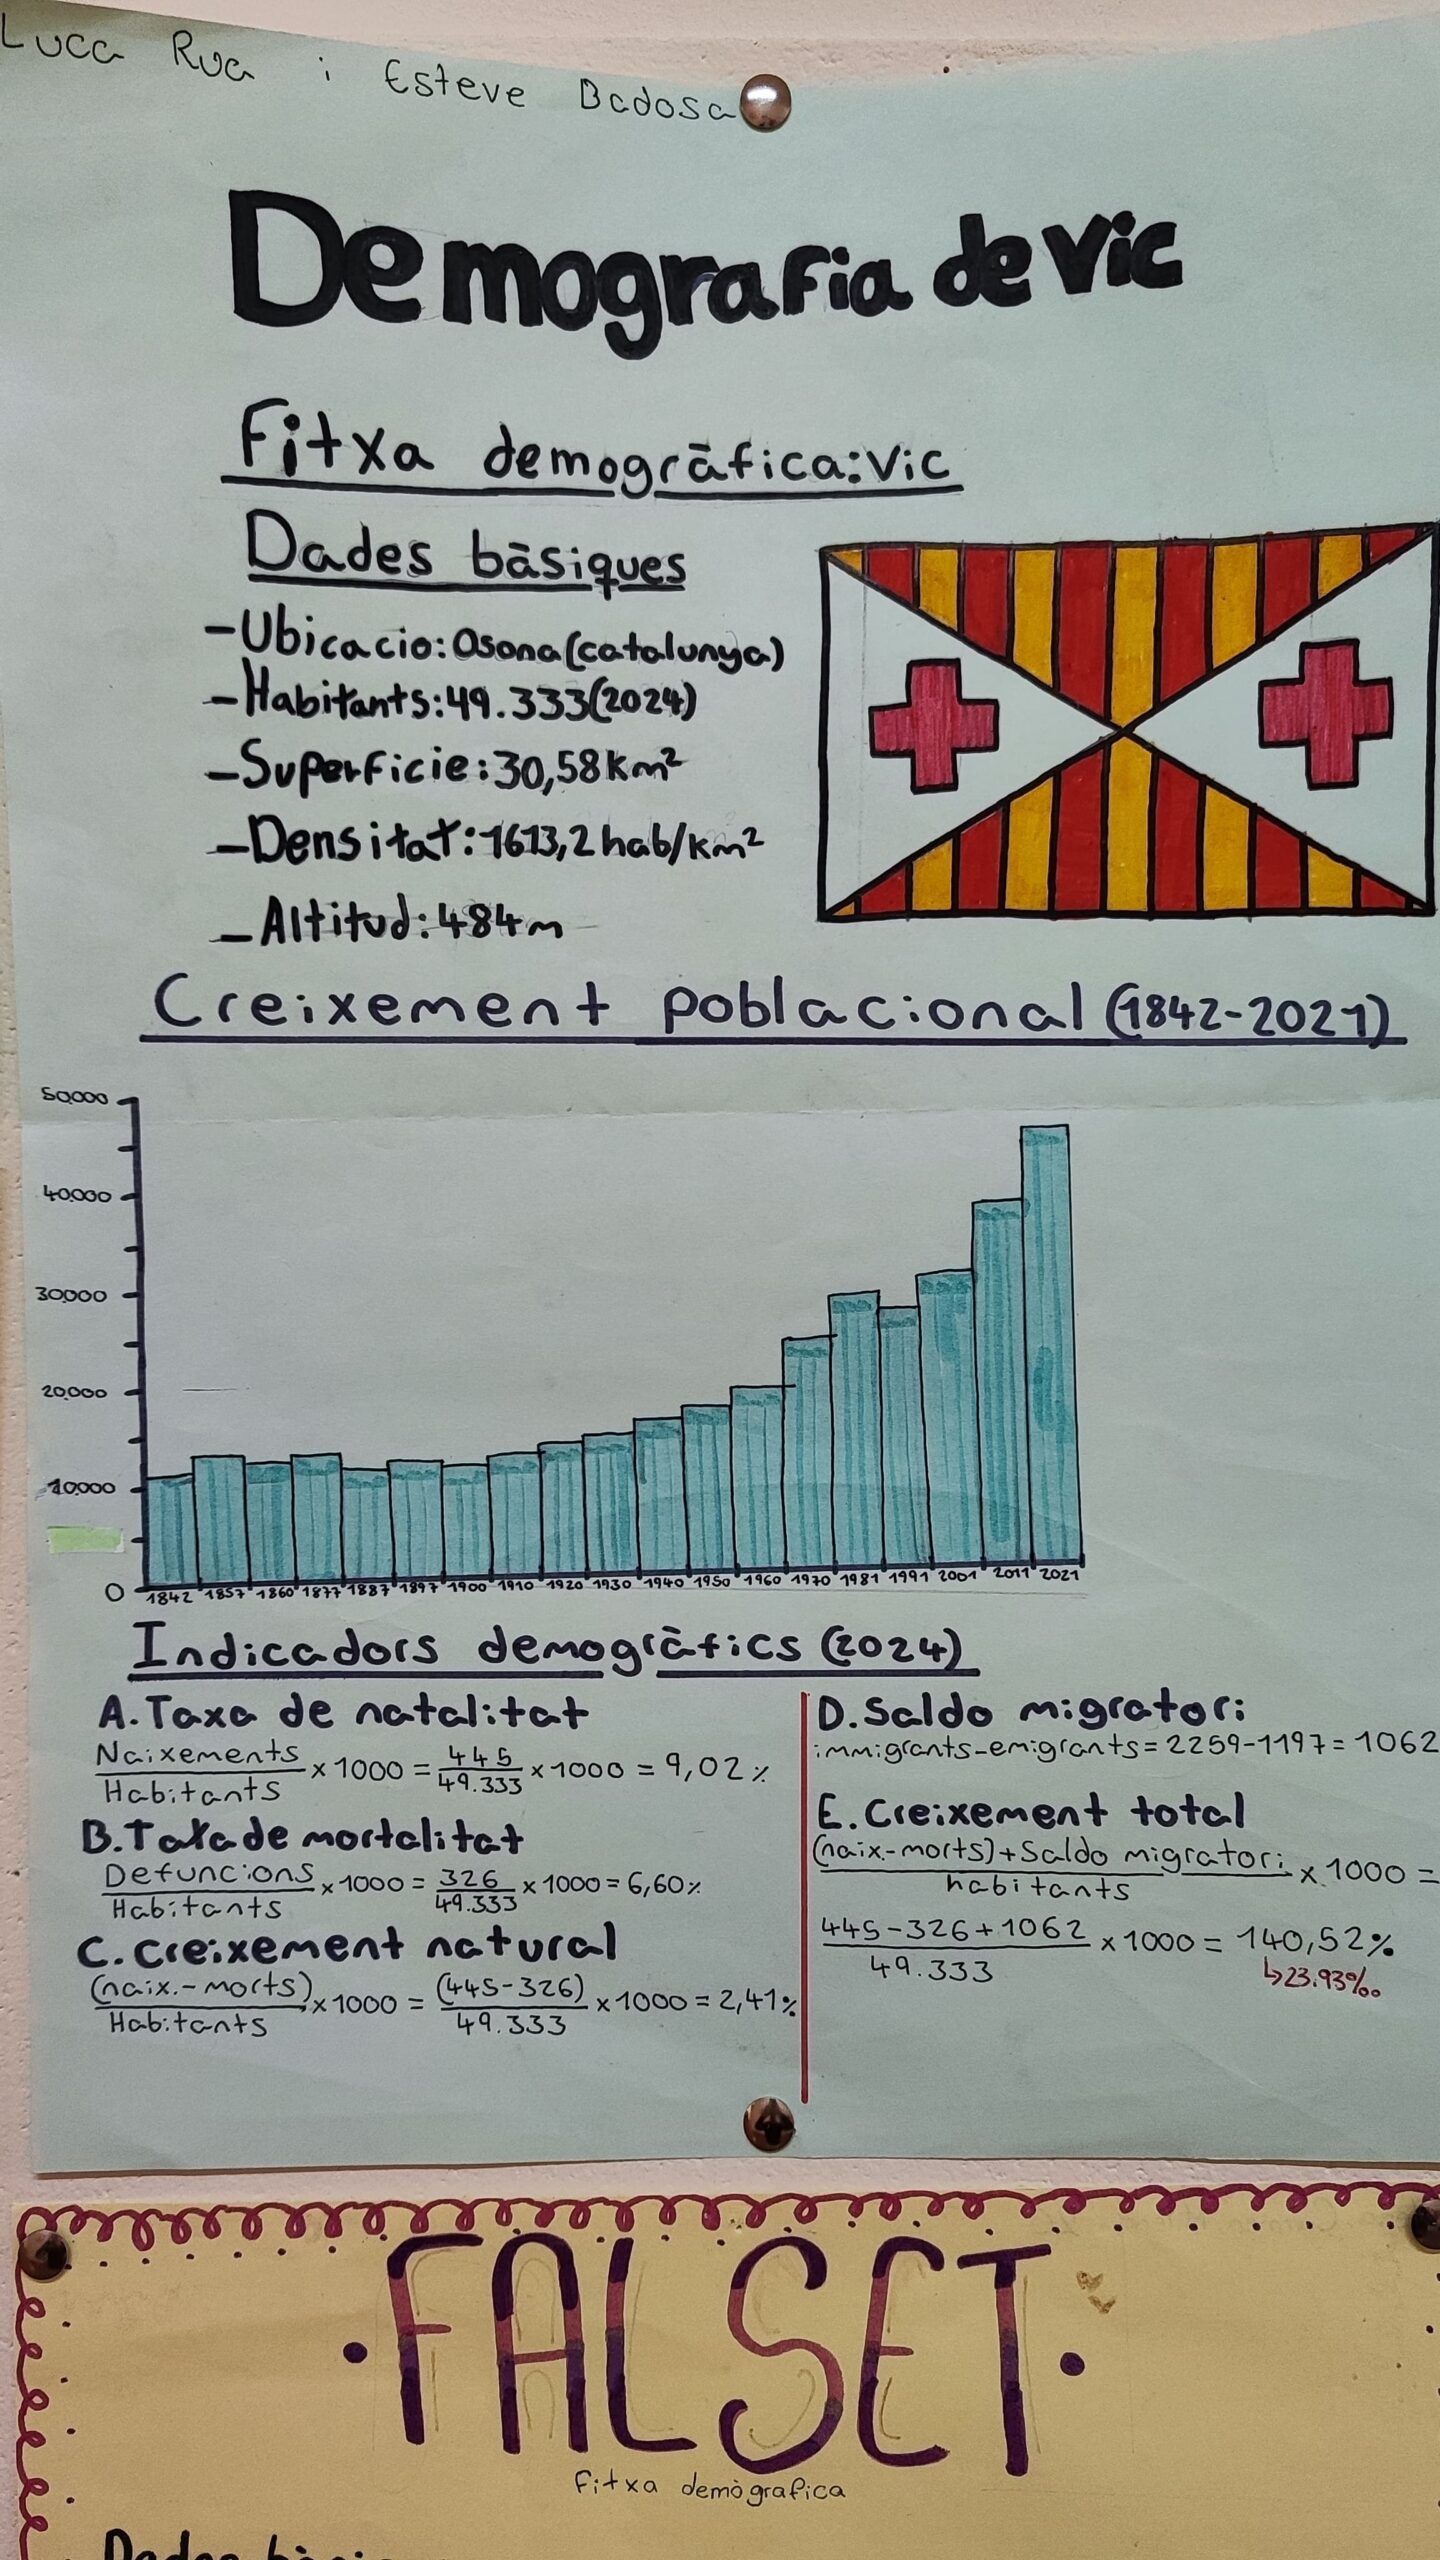 Luca Rua i Esteve Badosa
Demografia de Vic
Fitxa demogràfica: Vic
Dades bàsiques
- Ubicacio: Osona (catalunya)
- Habitants: 49.333 (2024)
- Superficie: 30,58 km²
- Densitat: 1613,2 hab/km²
- Altitud: 484m
Creixement poblacional (1842-2021)
50.000
40.000
30.000
20.000
10.000
0
1842 1857 1860 1877 1887 1897 1900 1910 1920 1930 1940 1950 1960 1970 1981 1991 2001 2011 2021
Indicadors demogràfics (2024)
A. Taxa de natalitat
Naixements / Habitants x 1000 = 445 / 49.333 x 1000 = 9,02 %
B. Taxa de mortalitat
Defuncions / Habitants x 1000 = 326 / 49.333 x 1000 = 6,60 %
C. Creixement natural
(naix.-morts) / Habitants x 1000 = (445-326) / 49.333 x 1000 = 2,41 %
D. Saldo migratori
immigrants-emigrants = 2259-1197 = 1062
E. Creixement total
(naix.-morts) + Saldo migratori / habitants x 1000 =
445-326+1062 / 49.333 x 1000 = 140,52 %
↳ 23.93‰
· FALSET ·
Fitxa demògrafica